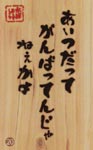 あいつだって
がんばってんじゃ
ねぇかよ